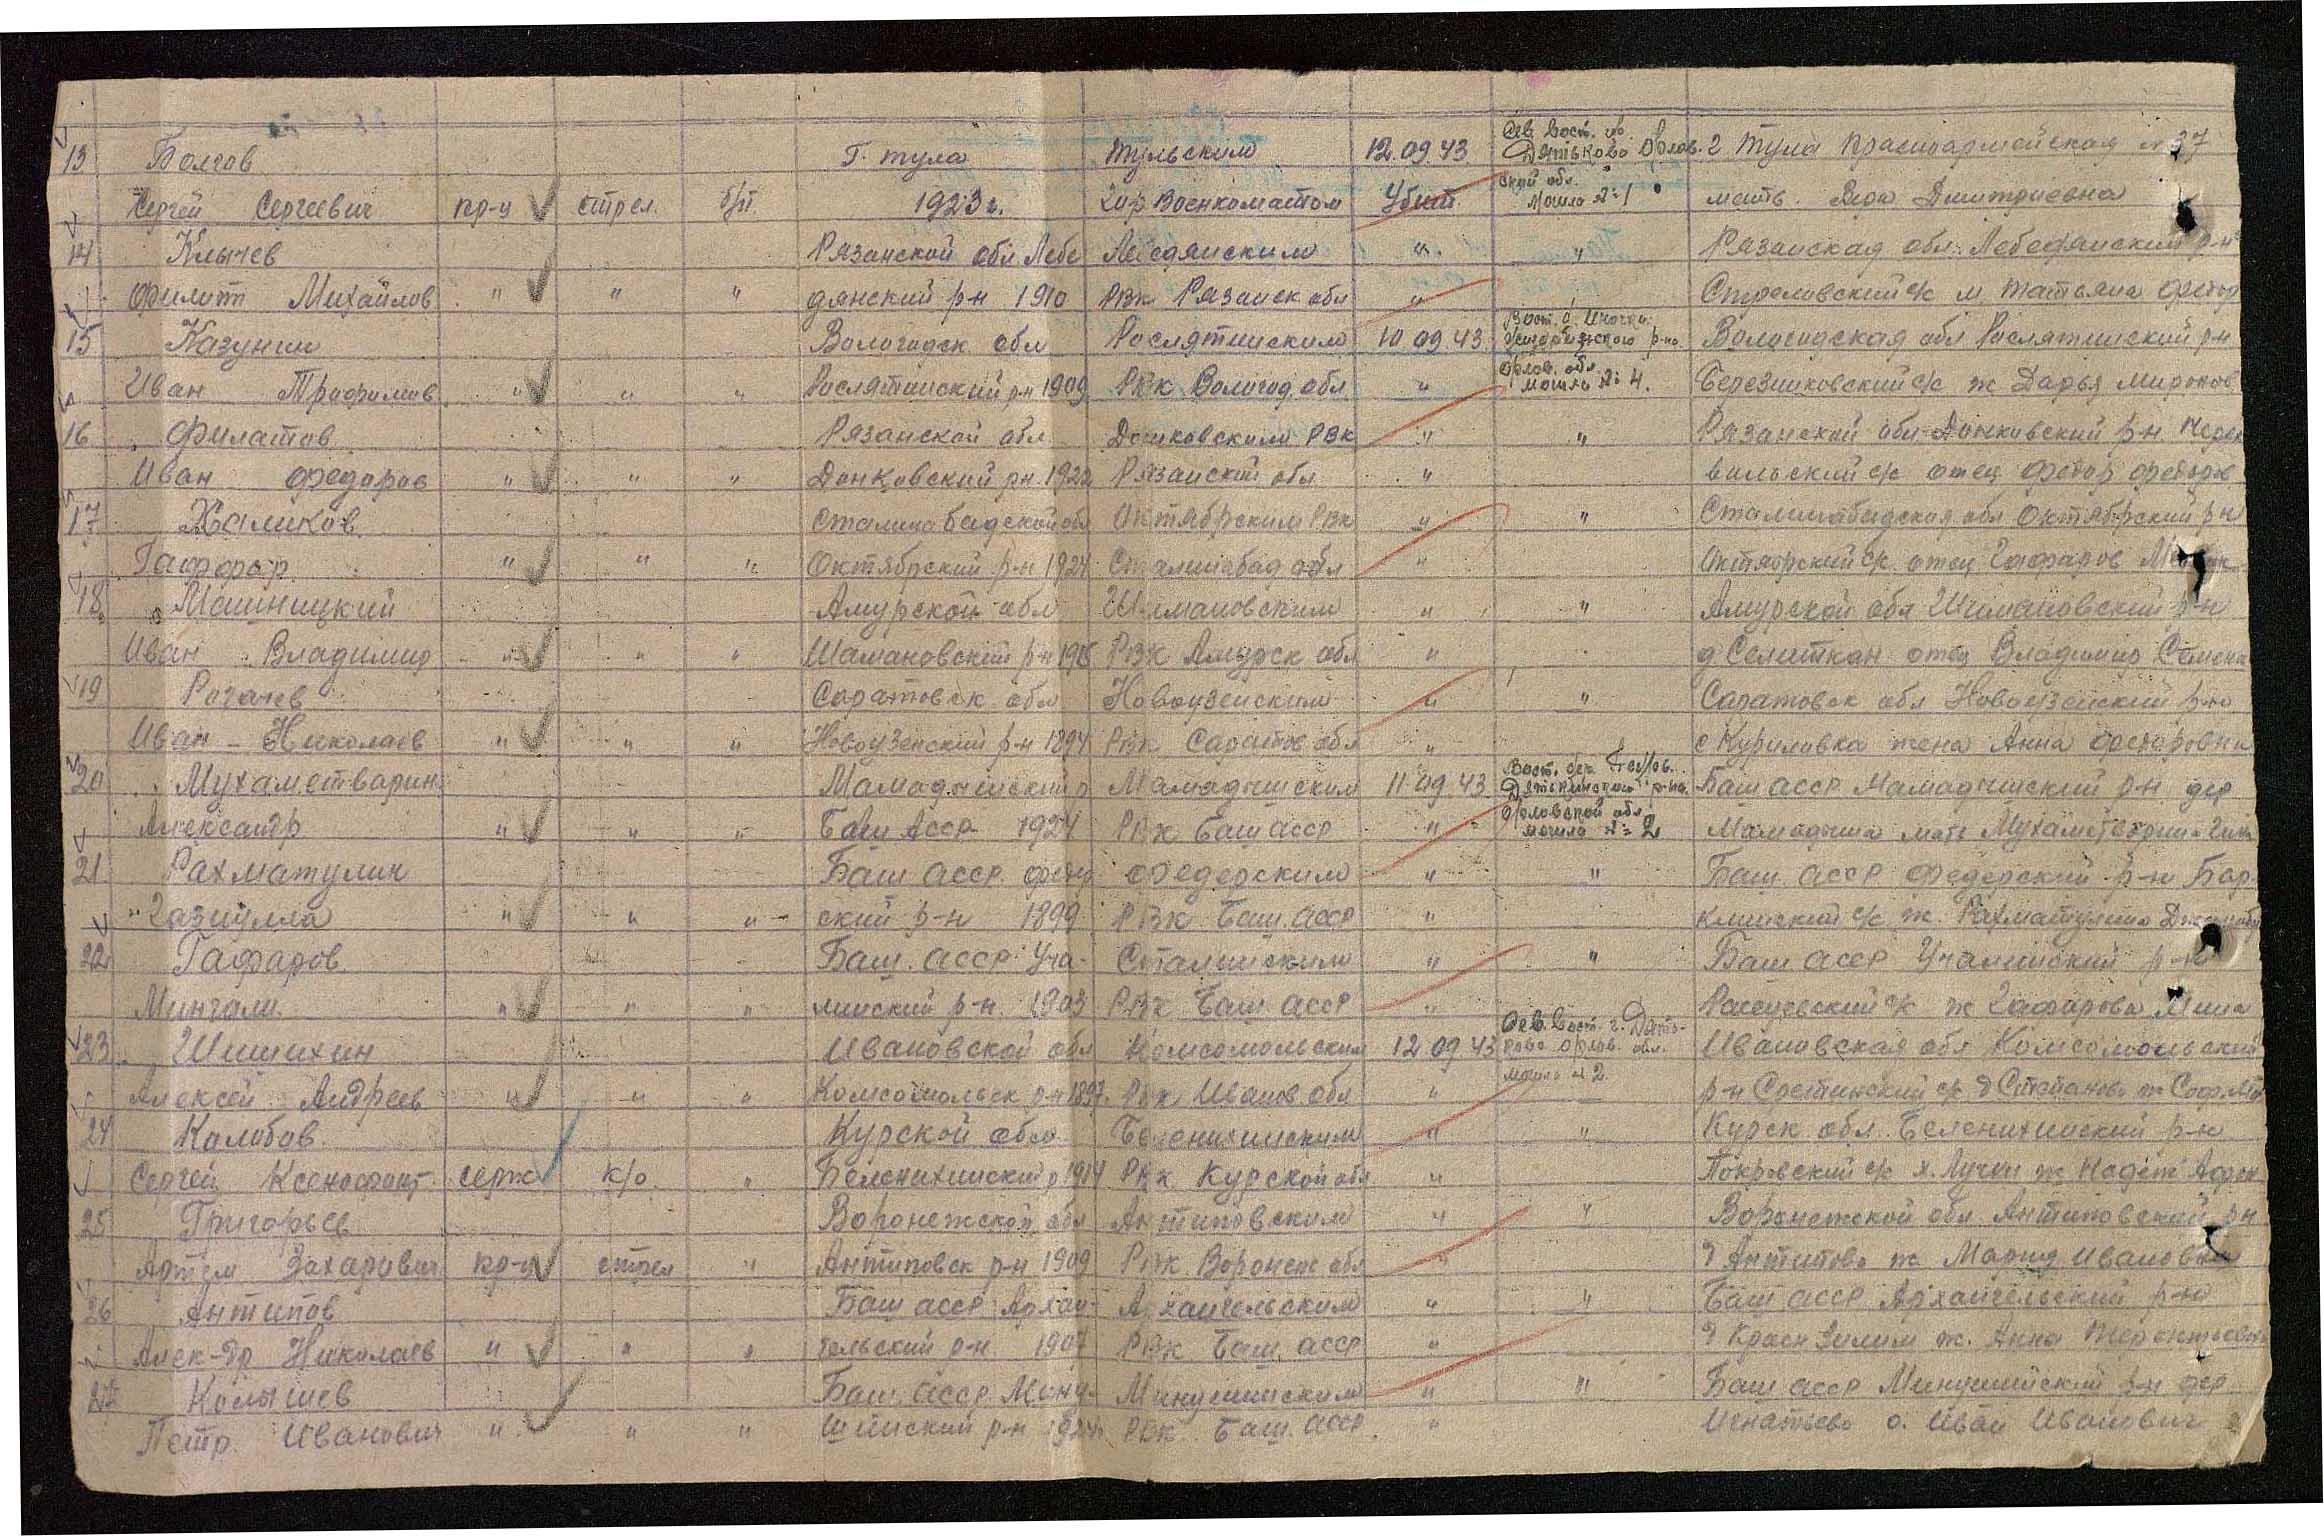 13 Болгов Г. Тула Тульским 12.09.43 Сев. Вост. Дятьково Орлов. г Тула Красноармейская № 37
Сергей Сергеевич кр-ц стрел. б/п 1923 г. Гор Военкоматом Убит ской обл. Могила № 1 мать Вера Дмитриевна
14 Клычев Рязанской обл Лебе Лебедянским " " Рязанская обл. Лебедянский р-н
Филипп Михайлов " " " дянский р-н 1910 РВК Рязанск обл " Стрелковский с/с м Татьяна Федор
15 Казунин Вологодск обл Рослятинским 10.09.43 Вост. р-на Вологодская обл Рослятинский р-н
Иван Трофимов " " " Рослятинский р-н 1909 РВК Вологод. обл. " Орлов. обл. могила № 4. Березниковский с/с ж Дарья Миронов
16 Филатов Рязанской обл Донковским РВК " " Рязанской обл Донковский р-н
Иван Федоров " " " Донковский р-н 1922 Рязанской обл " вильский с/с отец Федор Федоров
17 Халиков Сталинабадской обл Октябрским РВК " " Сталинабадская обл Октябрский р-н
Гаффор " " " Октябрский р-н 1924 Сталинабад обл " Октябрский с/с отец Гафаров
18 Машницкий Амурской обл Шимановским " " Амурской обл Шимановский р-н
Иван Владимир " " " Шамановский р-н РВК Амурск обл " д Селиткан отец Владимир Семен
19 Рогачев Саратовск обл Новоузенским " " Саратовск обл Новоузенский р-н
Иван Николаев " " " Новоузенский р-н 1894 РВК Саратов обл " с Куриловка жена Анна Федоровна
20 Мухаметварин Мамадышский р Мамадышским 11.09.43 Вост. бер. Дятьковского р-на Баш АССР Мамадышский р-н дер
Александр " " " Баш АССР 1924 РВК Баш АССР " Орловской обл могила № 2 Мамадыша мать
21 Рахматулин Баш АССР Федер Федерским " " Баш. АССР Федерский р-н Бар
Газиулла " " " ский р-н 1899 РВК Баш. АССР " клинский с/с ж. Рахматулина
22 Гафаров Баш. АССР Уча- Сталинским " " Баш АССР Учалинский р-н
Мингали " " " линский р-н 1903 РВК Баш АССР " с/с ж Гафарова
23 Шишихин Ивановской обл Комсомольским 12 09 43 Сев. Вост. г. Дять- ково Орлов. обл. Ивановская обл Комсомольский
Алексей Андреев " " " Комсомольск р-н 1897 РВК Иванов. обл " могила № 2 р-н с/с д Степаново ж Соф.
24 Колобов Курской обл Беленихинским " " Курск обл. Беленихинский р-н
Сергей Ксенофонт серж к/о " Беленихинский р 1914 РВК Курской обл " Покровский с/с х. Лучки ж Надеж Афон
25 Григорьев Воронежской обл Антиповским " " Воронежской обл Антиповский р-н
Артем Захарович кр-ц стрел " Антиповск р-н 1909 РВК Воронеж обл " д Антипово ж Мария Ивановна
26 Антипов Баш АССР Архан- Архангельским " " Баш АССР Архангельский р-н
Алек-др Николаев " " " гельский р-н 1907 РВК Баш. АССР " д Красн Зилим ж. Анна Терентьевна
27 Колышев Баш. АССР Мину- Минушинским " " Баш АССР Минушинский р-н дер
Петр Иванович " " " шинский р-н 1924 РВК Баш. АССР " Игнатьево о. Иван Иванович